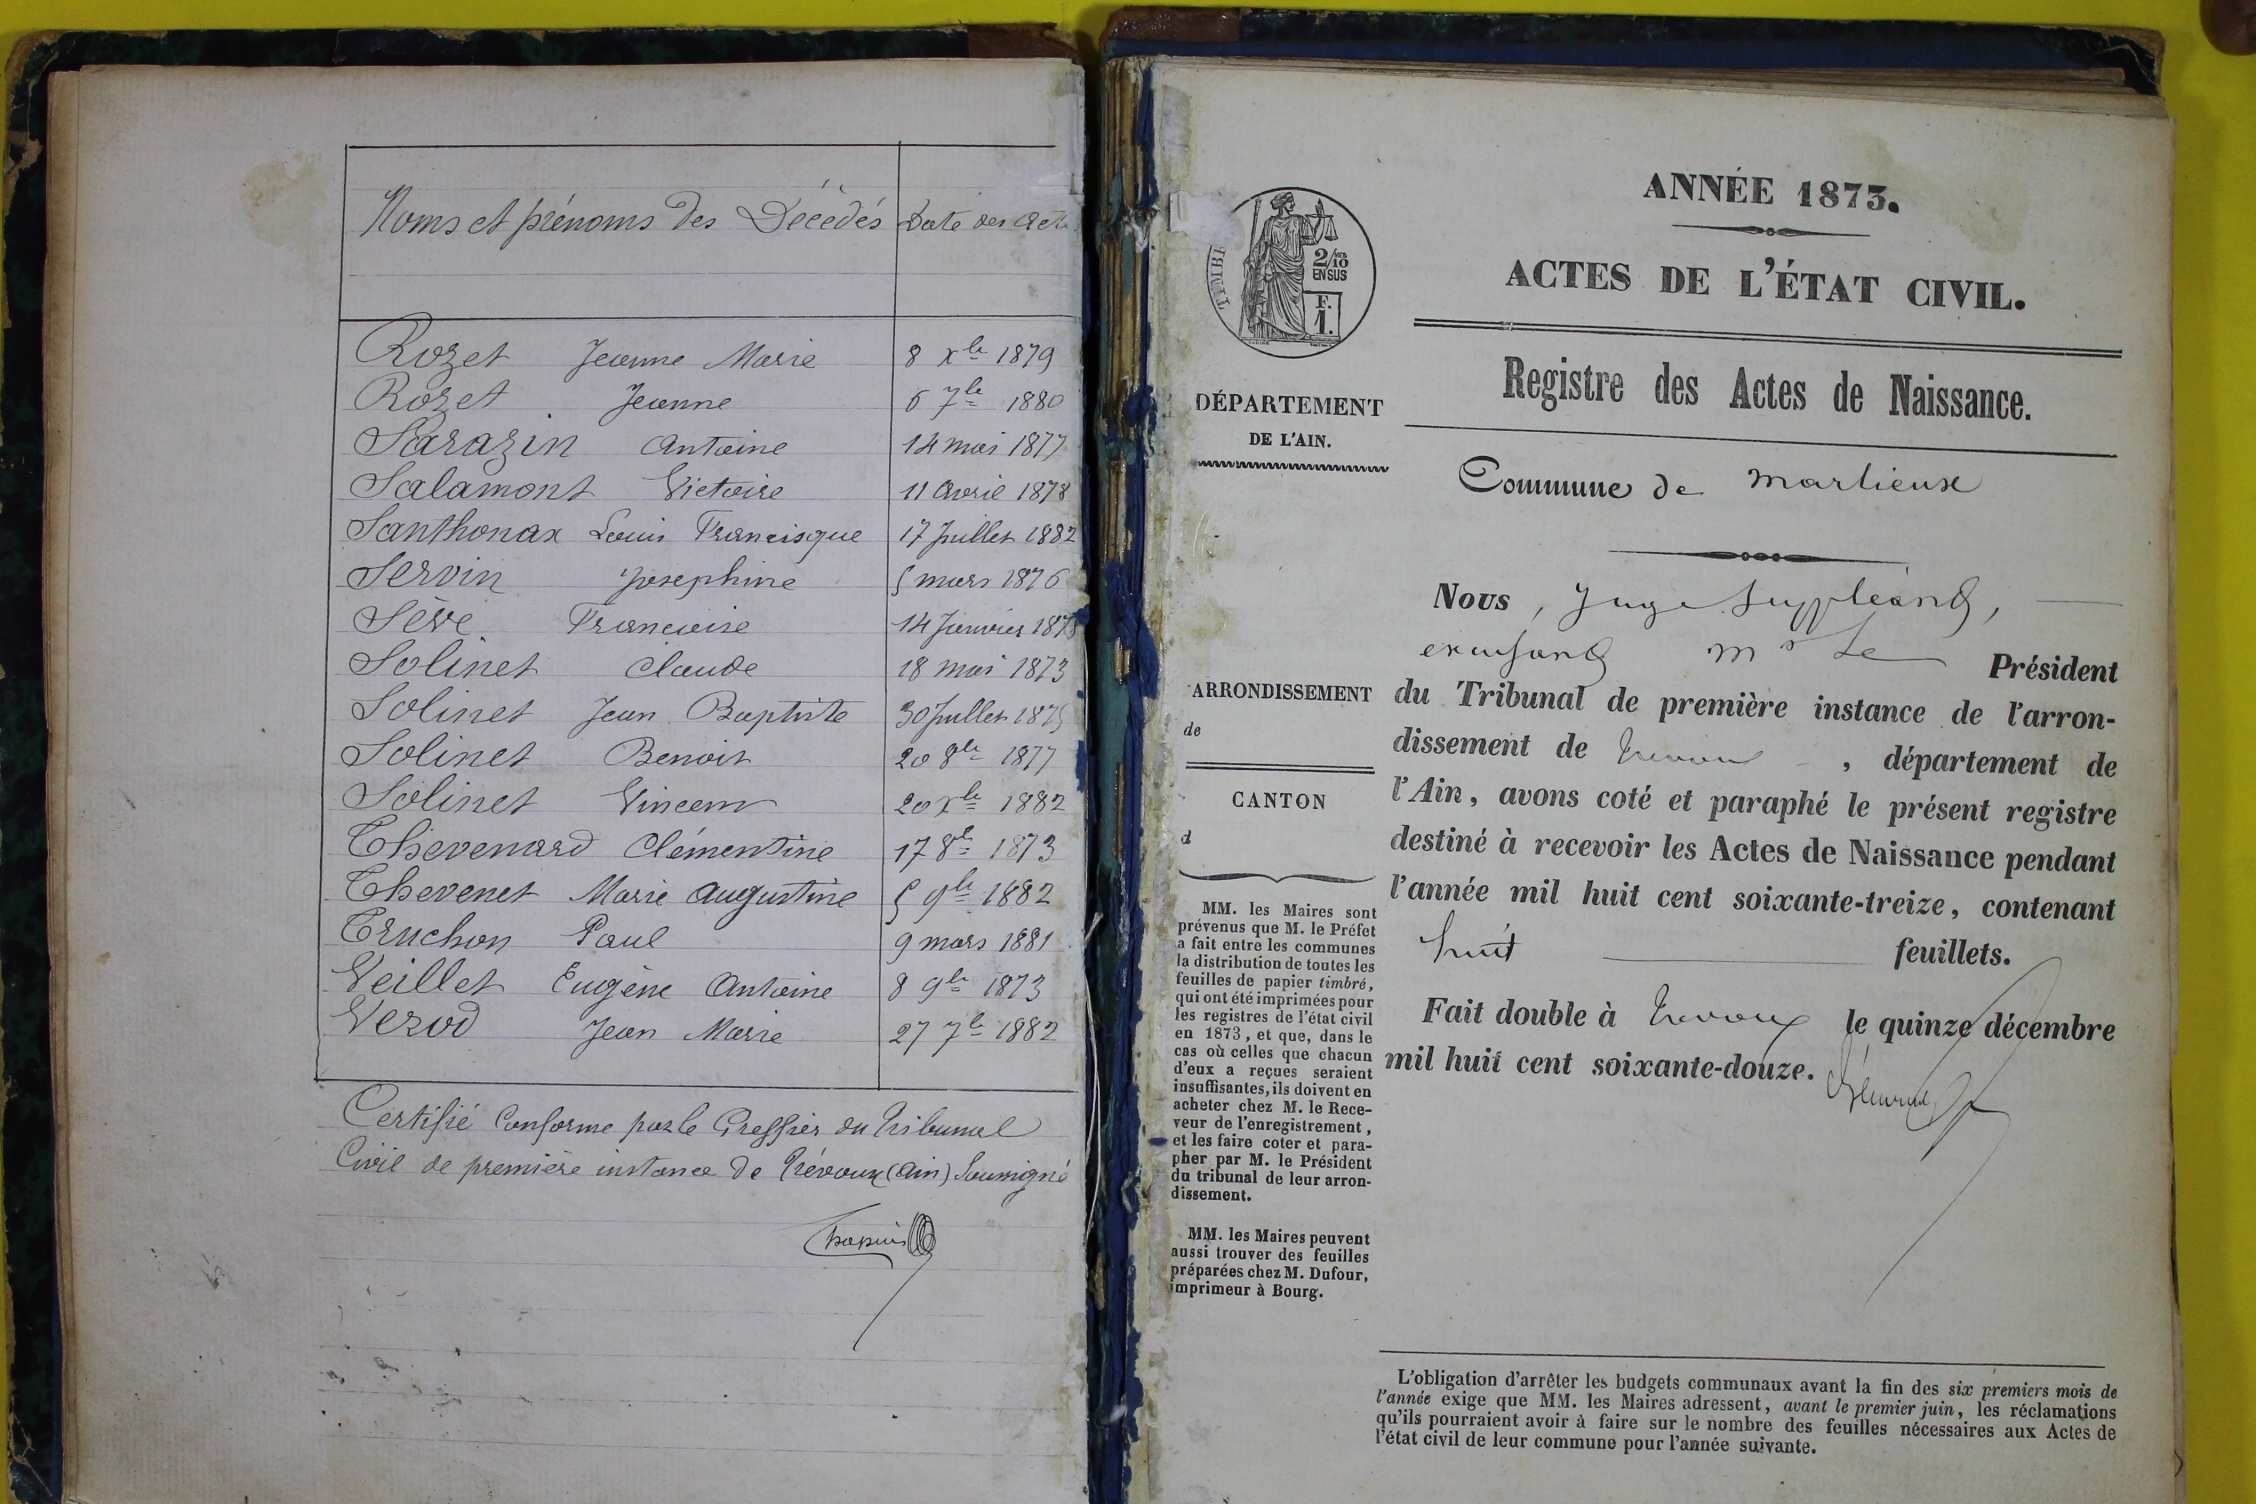 Noms et prénoms des Décédés Date des Acte
Rozet Jeanne Marie 8 xbe 1879
Rozet Jeanne 6 7be 1880
Sarazin Antoine 14 mai 1877
Salamont Victoire 11 Avril 1878
Santhonax Louis Francisque 17 Juillet 1882
Servin Josephine 5 mars 1876
Sève Francoise 14 Janvier 187
Solinet Claude 18 mai 1873
Solinet Jean Baptiste 30 Juillet 1875
Solinet Benoit 20 8be 1877
Solinet Vincent 20 xbe 1882
Thevenard Clémentine 17 8be 1873
Thevenet Marie Augustine 5 9be 1882
Truchon Paul 9 mars 1881
Veillet Eugène Antoine 8 9be 1873
Vezod Jean Marie 27 7be 1882
Certifié Conforme par le Greffier du Tribunal
Civil de première instance de Trévoux (Ain) Soussigné
ANNÉE 1873.
ACTES DE L'ÉTAT CIVIL.
Registre des Actes de Naissance.
TIMBR
2/10
EN SUS
F.
1.
DÉPARTEMENT
DE L'AIN.
ARRONDISSEMENT
de
CANTON
d
MM. les Maires sont
prévenus que M. le Préfet
a fait entre les communes
la distribution de toutes les
feuilles de papier timbré,
qui ont été imprimées pour
les registres de l'état civil
en 1873, et que, dans le
cas où celles que chacun
d'eux a reçues seraient
insuffisantes, ils doivent en
acheter chez M. le Rece-
veur de l'enregistrement,
et les faire coter et para-
pher par M. le Président
du tribunal de leur arron-
dissement.
MM. les Maires peuvent
aussi trouver des feuilles
préparées chez M. Dufour,
imprimeur à Bourg.
Commune de Marlieux
Nous, Juge Suppléant,
excusant Mr Le Président
du Tribunal de première instance de l'arron-
dissement de Trévoux, département de
l'Ain, avons coté et paraphé le présent registre
destiné à recevoir les Actes de Naissance pendant
l'année mil huit cent soixante-treize, contenant
huit feuillets.
Fait double à Trévoux le quinze décembre
mil huit cent soixante-douze.
L'obligation d'arrêter les budgets communaux avant la fin des six premiers mois de
l'année exige que MM. les Maires adressent, avant le premier juin, les réclamations
qu'ils pourraient avoir à faire sur le nombre des feuilles nécessaires aux Actes de
l'état civil de leur commune pour l'année suivante.